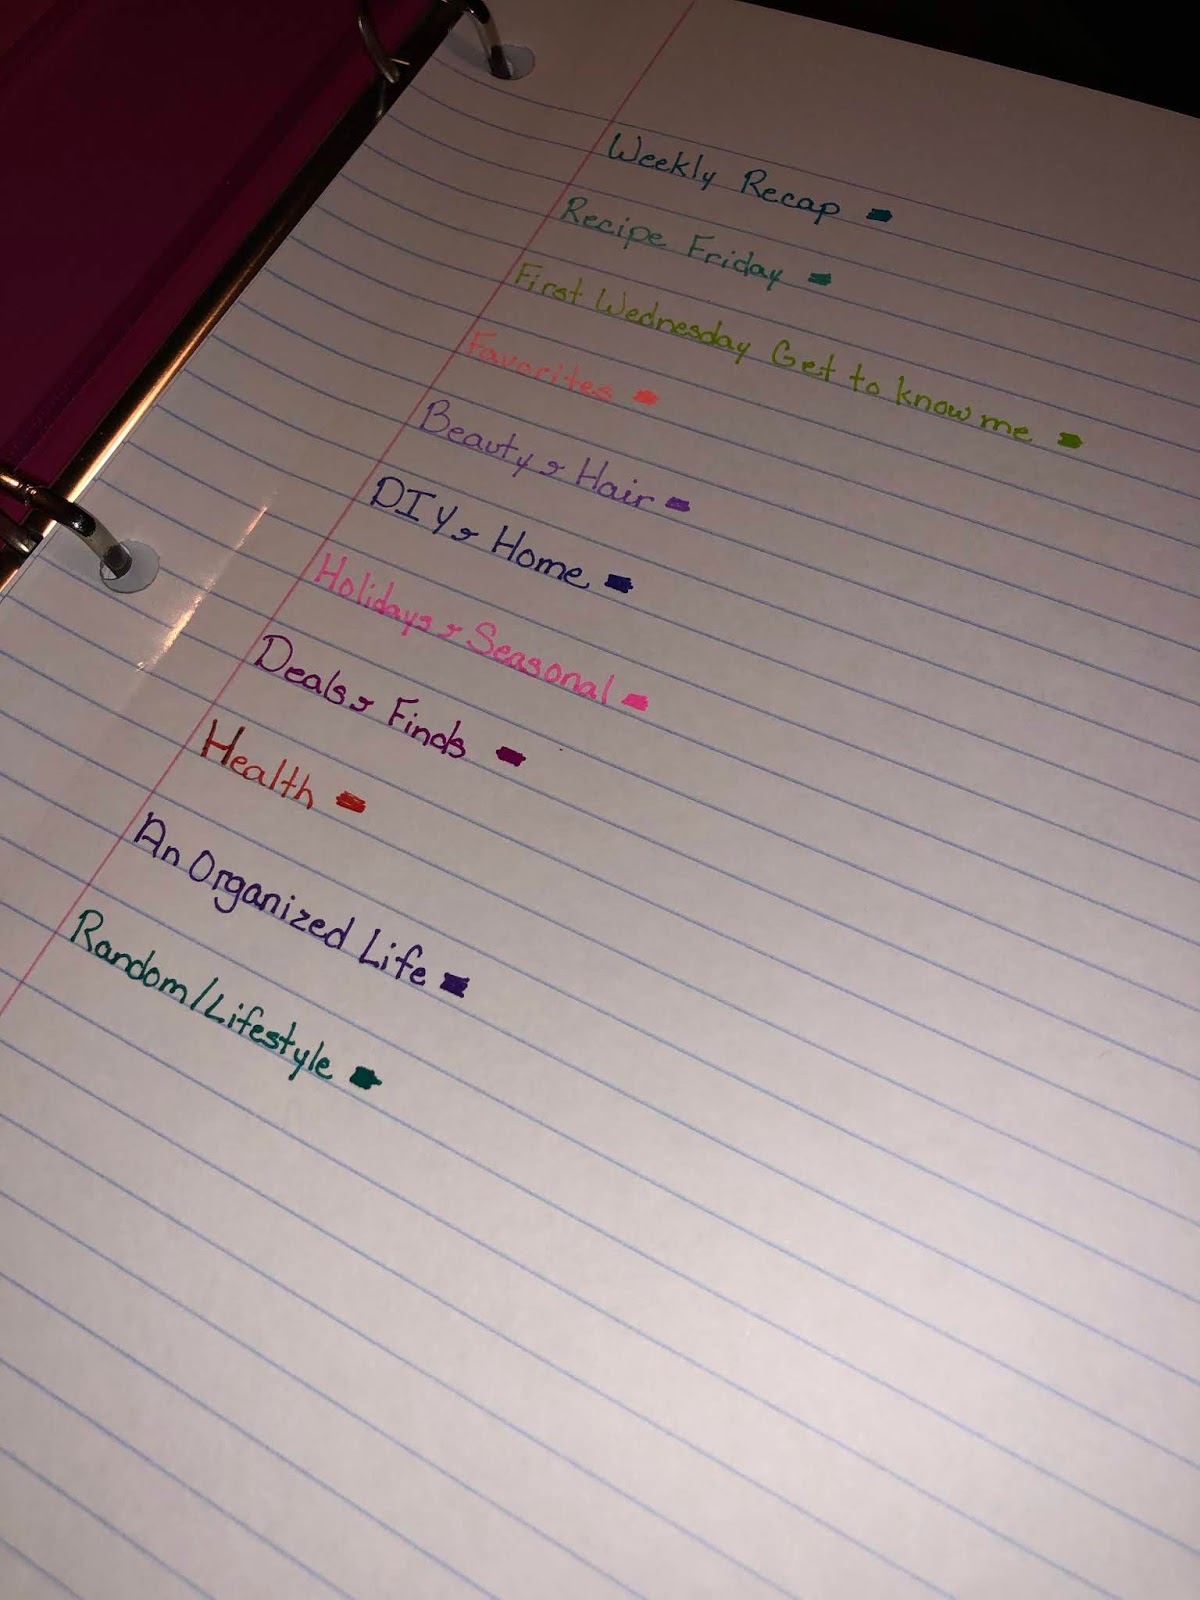 Weekly Recap
Recipe Friday
First Wednesday Get to know me
Favorites
Beauty & Hair
DIY & Home
Holidays & Seasonal
Deals & Finds
Health
An Organized Life
Random/Lifestyle